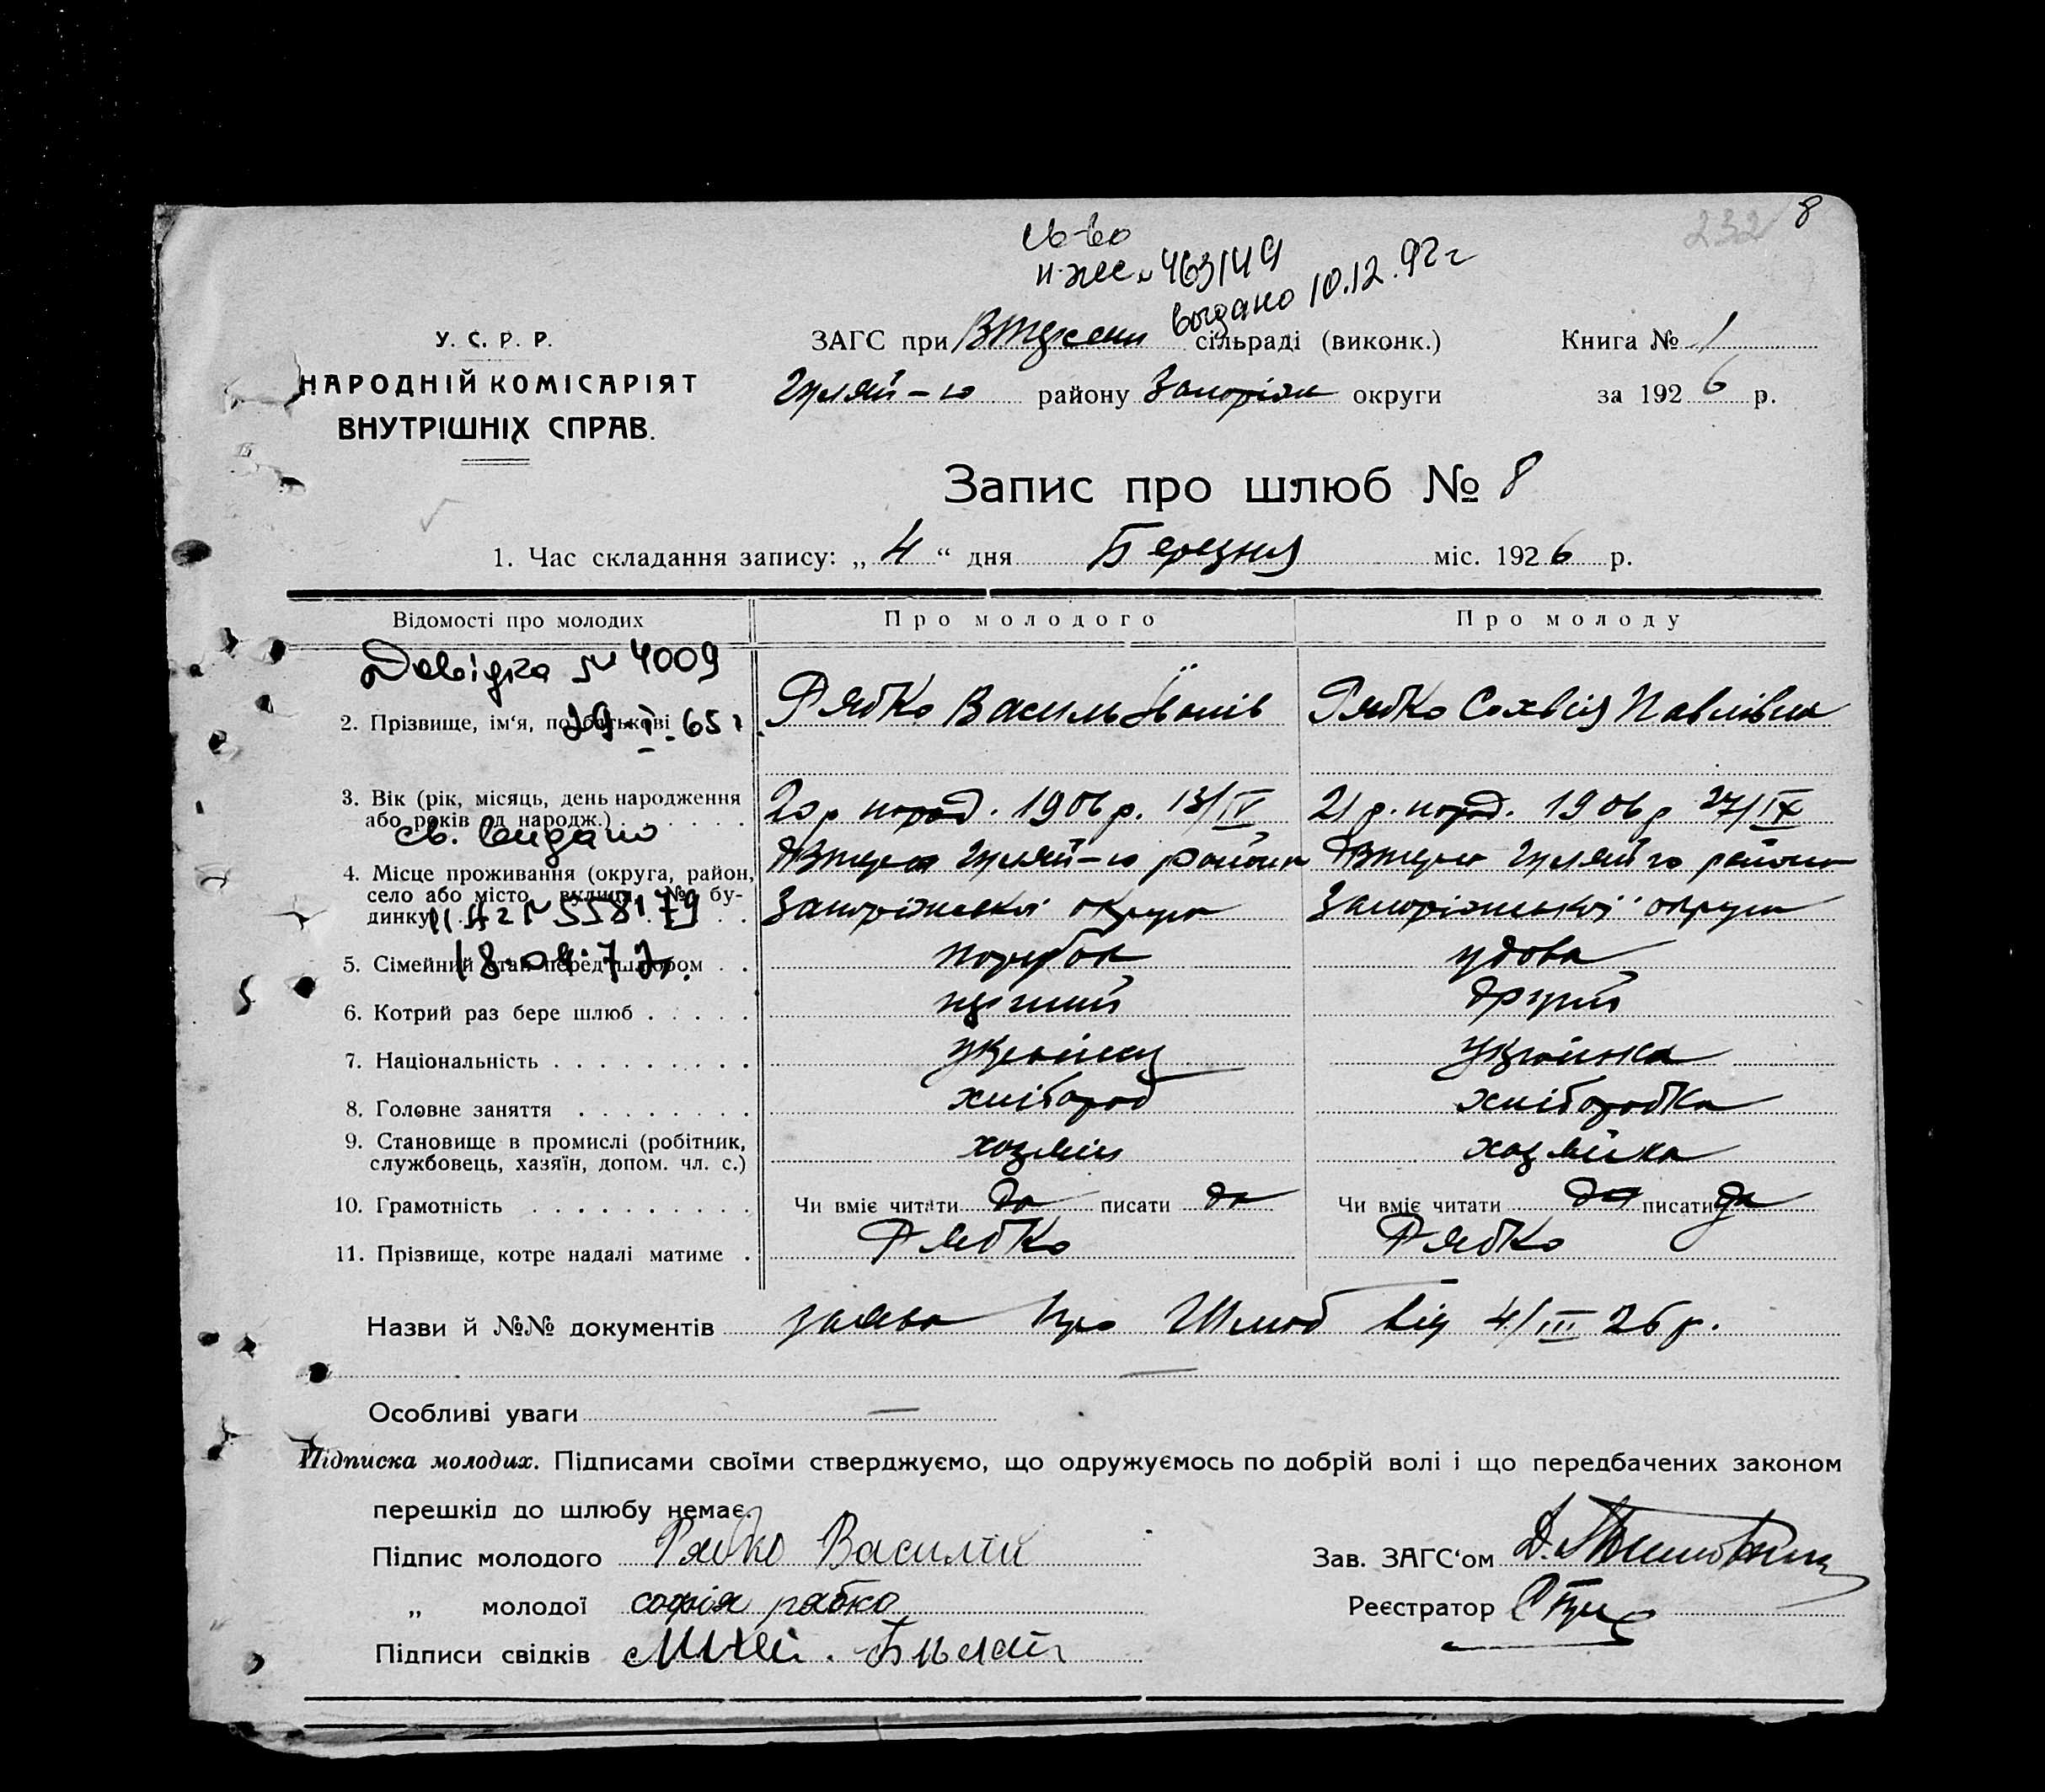 232 8
св-во
выдано 10.12.92 г
У. С. Р. Р.
НАРОДНІЙ КОМІСАРІЯТ
ВНУТРІШНІХ СПРАВ.
ЗАГС при сільраді (виконк.)
Гуляй-го району Запоріж округи
Книга № 1
за 1926 р.
Запис про шлюб № 8
1. Час складання запису: „4“ дня Березня міс. 1926 р.
Відомості про молодих
Про молодого
Про молоду
Довідка № 4009
2. Прізвище, ім‘я, по батькові
Рябко Василь Рябко Софія Павлівна
3. Вік (рік, місяць, день народження або років од народж.)
20 р народ. 1906 р. 13/IV 21 р. народ. 1906 р 27/IX
св. видано
4. Місце проживання (округа, район, село або місто, вулиця, № будинку)
Гуляй-го района Гуляй го района
Запоріжської округи Запоріжської округи
5. Сімейний стан перед шлюбом
парубок удова
6. Котрий раз бере шлюб
перший другий
7. Національність
українец українка
8. Головне заняття
хлібороб хліборобка
9. Становище в промислі (робітник, службовець, хазяїн, допом. чл. с.)
хозяїн хозяйка
10. Грамотність
Чи вміє читати да писати да Чи вміє читати да писати да
11. Прізвище, котре надалі матиме
Рябко Рябко
Назви й №№ документів заява про Шлюб від 4/III 26 р.
Особливі уваги —
Підписка молодих. Підписами своїми стверджуємо, що одружуємось по добрій волі і що передбачених законом
перешкід до шлюбу немає.
Підпис молодого Рябко Василій
„ молодої софія рябко
Підписи свідків
Зав. ЗАГС‘ом
Реєстратор